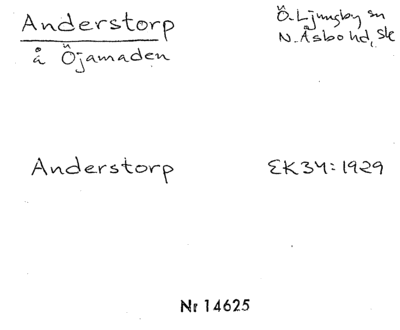 Anderstorp
å Öjamaden
Ö. Ljungby sn
N. Åsbo hd, Sk
Anderstorp
EK34:1929
Nr 14625